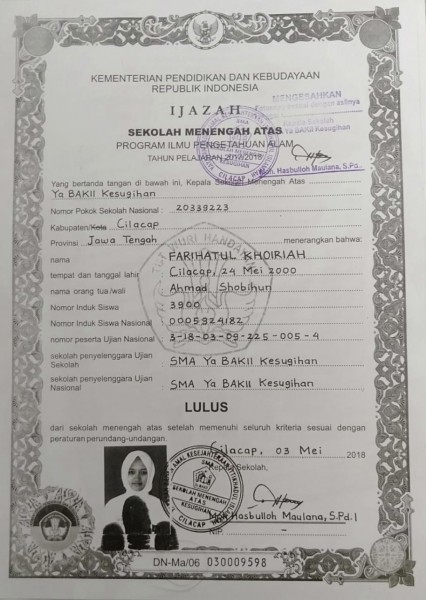 KEMENTERIAN PENDIDIKAN DAN KEBUDAYAAN
REPUBLIK INDONESIA
IJAZAH
SEKOLAH MENENGAH ATAS
PROGRAM ILMU PENGETAHUAN ALAM
TAHUN PELAJARAN 2017/2018
MENGESAHKAN
Kepala Sekolah
Ya BAKII Kesugihan
Moh. Hasbulloh Maulana, S.Pd.
Yang bertanda tangan di bawah ini, Kepala Sekolah Menengah Atas
Ya BAKII Kesugihan
Nomor Pokok Sekolah Nasional : 20339223
Kabupaten/Kota Cilacap
Provinsi Jawa Tengah menerangkan bahwa:
nama FARIHATUL KHOIRIAH
tempat dan tanggal lahir Cilacap, 24 Mei 2000
nama orang tua/wali Ahmad Shobihun
Nomor Induk Siswa 3900
Nomor Induk Siswa Nasional 0005924182
nomor peserta Ujian Nasional 3-18-03-09-225-005-4
sekolah penyelenggara Ujian
Sekolah : SMA Ya BAKII Kesugihan
sekolah penyelenggara Ujian
Nasional : SMA Ya BAKII Kesugihan
LULUS
dari sekolah menengah atas setelah memenuhi seluruh kriteria sesuai dengan
peraturan perundang-undangan.
Cilacap, 03 Mei 2018
Kepala Sekolah,
SEKOLAH MENENGAH
ATAS
KESUGIHAN
CILACAP
Moh Hasbulloh Maulana, S.Pd.I
NIP.
DN-Ma/06 030009598